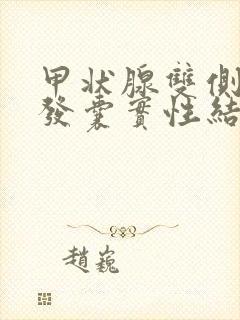 甲状腺雙側
發囊實性結
趙巍